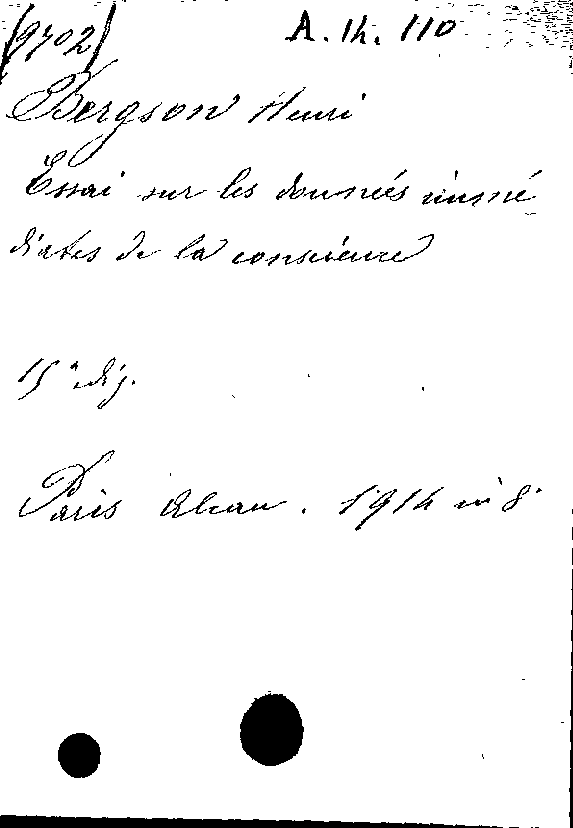 (9702) A. 14. 110
Bergson Henri
Essai sur les données immé
diates de la conscience
15e dij.
Paris Alcan. 1914 in 8°